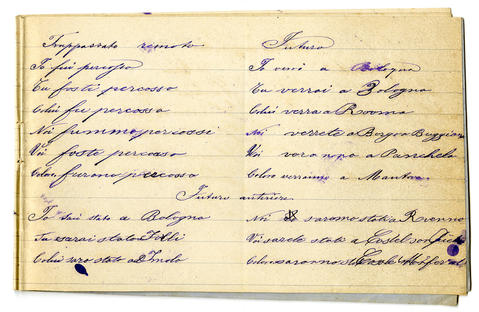 Trappassato remoto
Io fui percosso
Tu fosti percosso
Colui fu percosso
Noi fummo percossi
Voi foste percosso
Coloro furono percosso
Futuro
Io verrò a Bologna
Tu verrai a Bologna
Colui verra a Rooma
Noi verrete a Borgoa Buggiano
Voi a Panchela
Coloro verranno a Mantova
Futuro anteriore
Io stato a Bologna
Tu sarai stato a
Colui saro stato a Imola
Noi saromo stati a
Voi sarete stati a Castel son
Coloro saranno